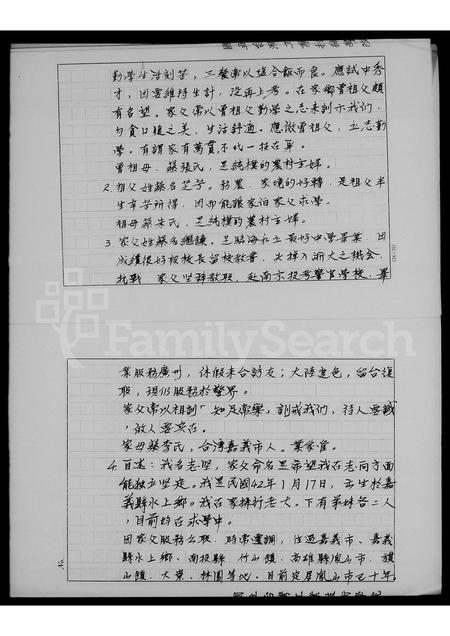 勤學生活刻苦，三餐常以塩合飯而食。應試中秀
才，因需維持生計，沒再上考。在家鄉曾祖父頗
有名望。家父常以曾祖父勤學之志來訓示我們，
勿貪口腹之美，生活舒適。應傚曾祖父，立志勤
學。有謂家有萬貫不如一技在身。
曾祖母，蔡張氏，是純樸的農村主婦。
2. 祖父姓蔡名芝芳。務農，家境的好轉，是祖父半
生辛苦所得，因而能讓家伯家父求學。
祖母蔡朱氏，是純樸的農村主婦。
3. 家父姓蔡名繼鍊。在臨海私立最好中學畢業，因
成績很好被校長留校教書，失掉入浙大之機會，
抗戰，家父堅辭教职，赴南京投考警官學校，畢
FamilySearch
業服務廣州，休假來台訪友；大陸變色，留台復
职，現仍服務於警界。
家父常以祖訓「知足常樂」訓戒我們，待人要誠
，做人要实在。
家母蔡李氏，台灣嘉義市人。業家管。
4. 自述：我名志堅，家父命名是希望我在志向方面
能独立坚定。我是民國42年1月17日，出生於嘉
義縣水上鄉。我在家排行老大。下有弟妹各二人
，目前均在求學中。
因家父服務公职，時常遷調，住过嘉義市、嘉義
縣水上鄉、南投縣，竹山鎮，高雄縣鳳山市，旗
山鎮，大寮，林園等地。目前定居鳳山市已十年，
No.